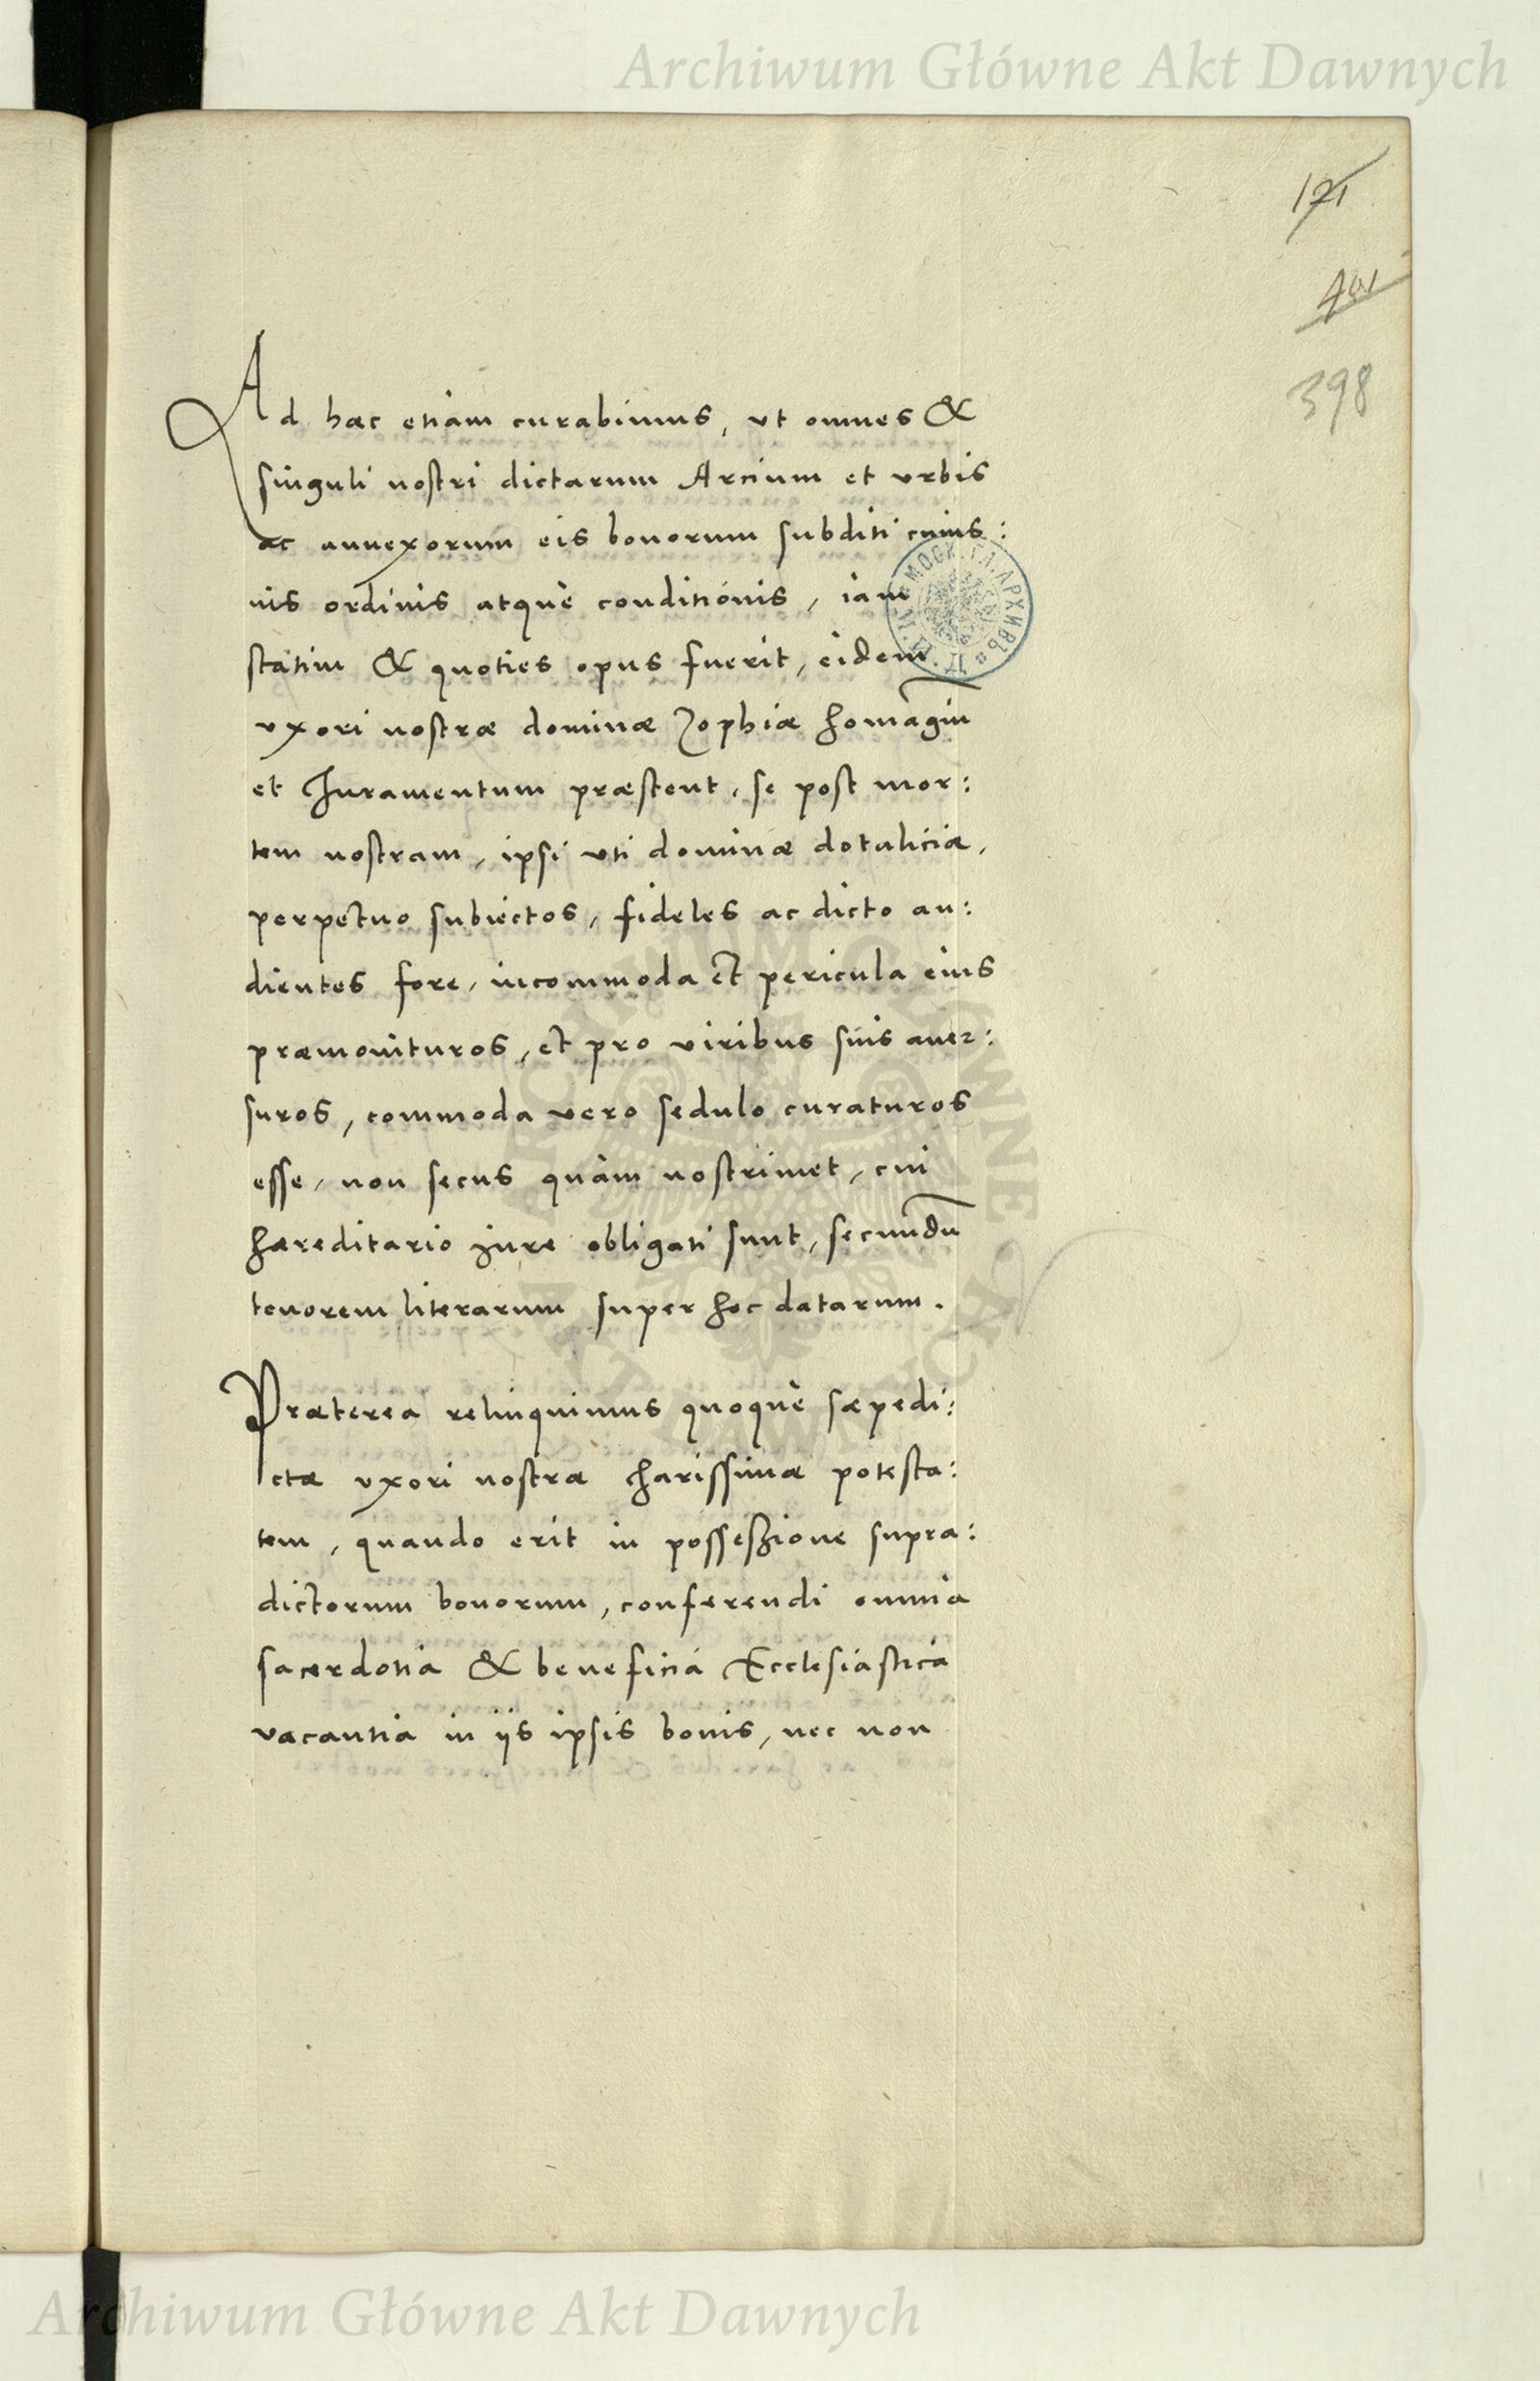 Archiwum Główne Akt Dawnych
171
401
398
Ad hæc etiam curabimus, vt omnes &
singuli nostri dictarum Arcium et vrbis
ac annexorum eis bonorum subditi cuius:
uis ordinis atque conditionis, iam
statim & quoties opus fuerit, eidem
vxori nostræ dominæ Zophiæ homagiū
et Iuramentum præstent, se post mor:
tem nostram, ipsi uti dominæ dotaliciæ,
perpetuo subiectos, fideles ac dicto au:
dientes fore, incommoda et pericula eius
præmonituros, et pro viribus suis auer:
suros, commoda vero sedulo curaturos
esse, non secus quàm nostrimet, cui
hæreditario iure obligati sunt, secundū
tenorem literarum super hoc datarum.
Præterea relinquimus quoque sæpedi:
ctæ vxori nostræ charissimæ potesta:
tem, quando erit in possessione supra:
dictorum bonorum, conferendi omnia
sacerdotia & beneficia Ecclesiastica
vacantia in ijs ipsis bonis, nec non
Archiwum Główne Akt Dawnych